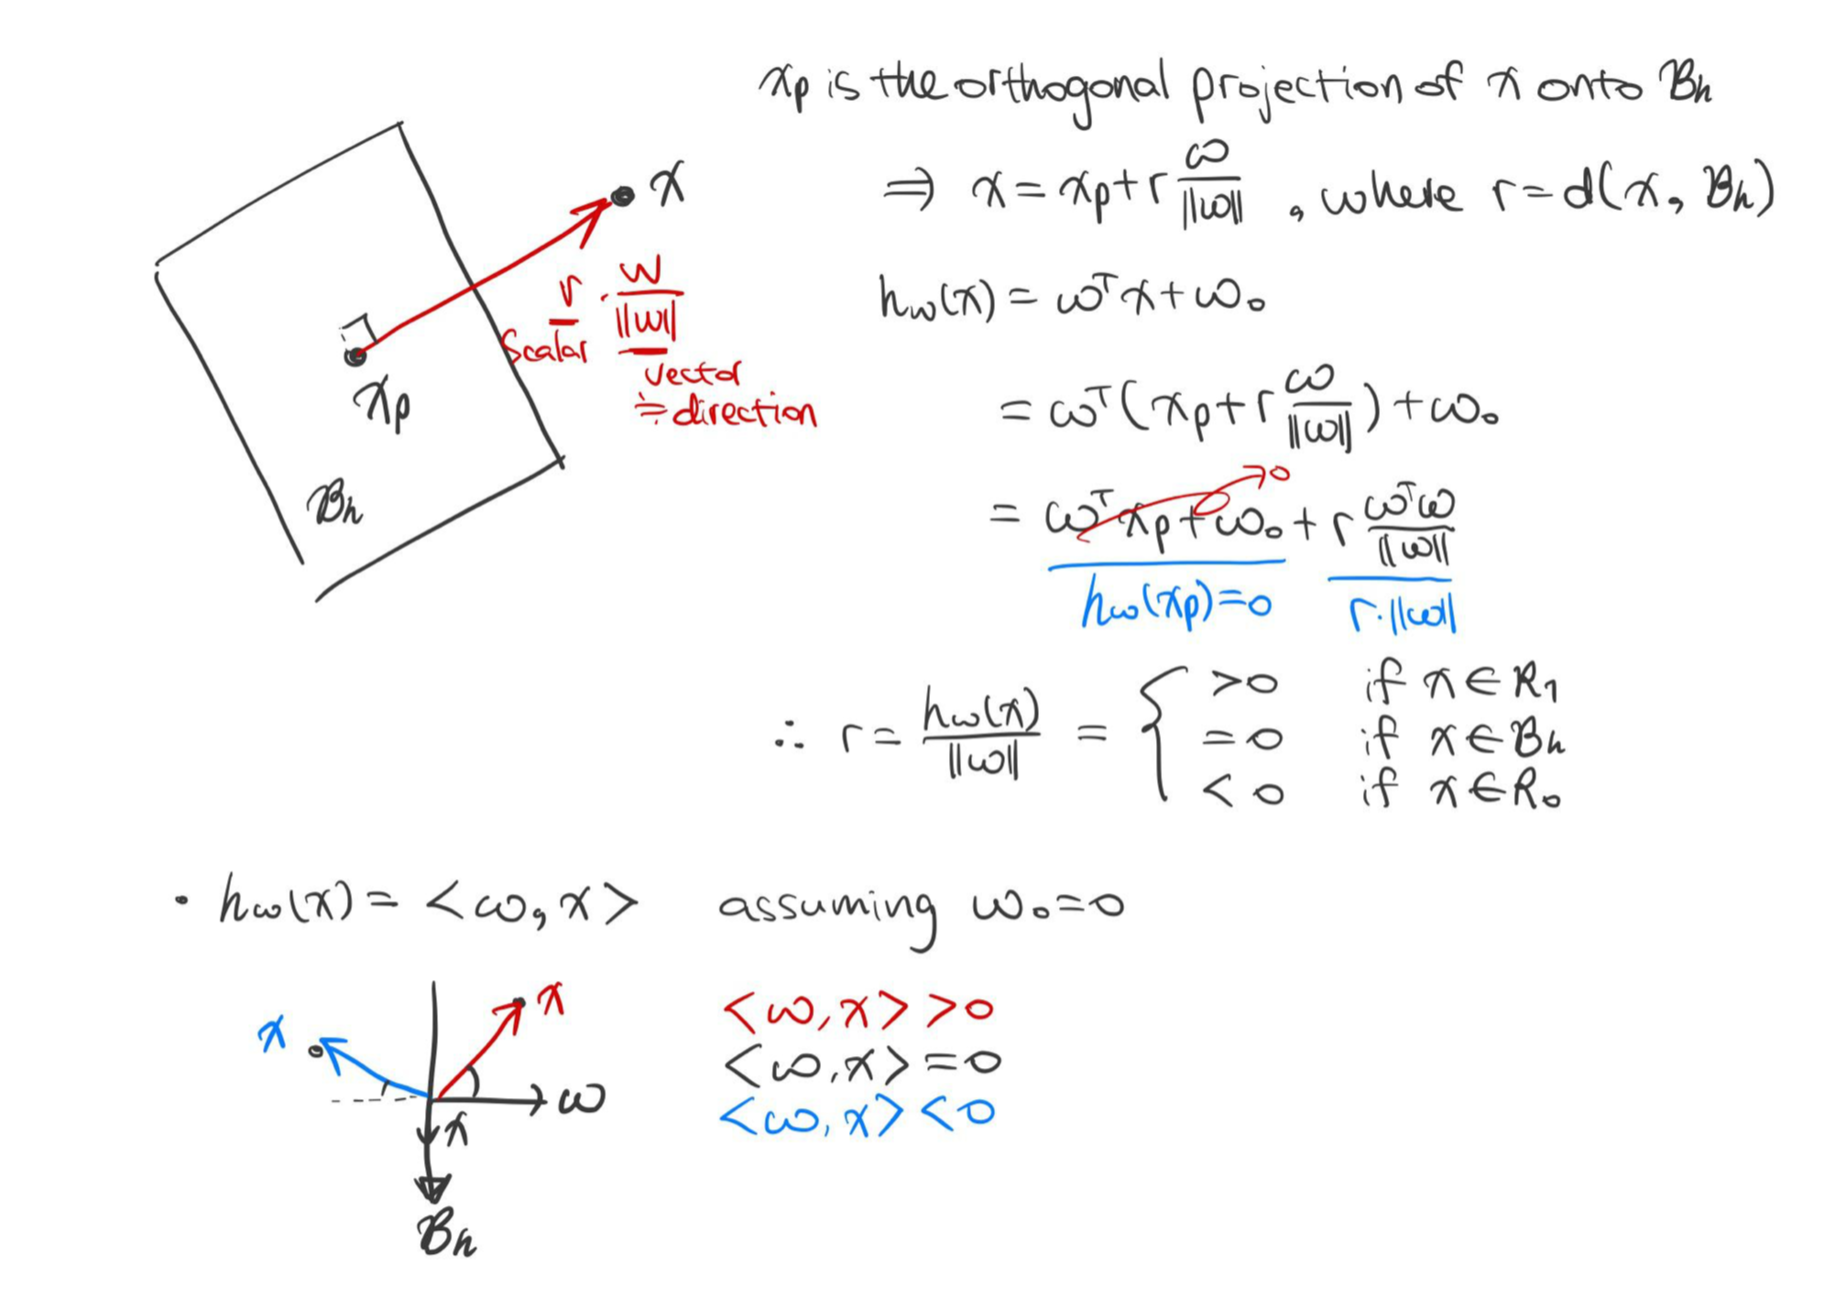 xp is the orthogonal projection of x onto Bh
⇒ x = xp + r ω/‖ω‖ , where r = d(x, Bh)
x
r · w/‖w‖
Scalar
vector
≒ direction
xp
Bh
hω(x) = ωᵀx + ω₀
= ωᵀ(xp + r ω/‖ω‖) + ω₀
= ωᵀxp + ω₀ + r ωᵀω/‖ω‖
→0
hω(xp) = 0
r·‖ω‖
∴ r = hω(x)/‖ω‖ = { >0 if x ∈ R₁
=0 if x ∈ Bh
<0 if x ∈ R₀
• hω(x) = <ω, x> assuming ω₀ = 0
x
x
ω
x
Bh
<ω, x> > 0
<ω, x> = 0
<ω, x> < 0